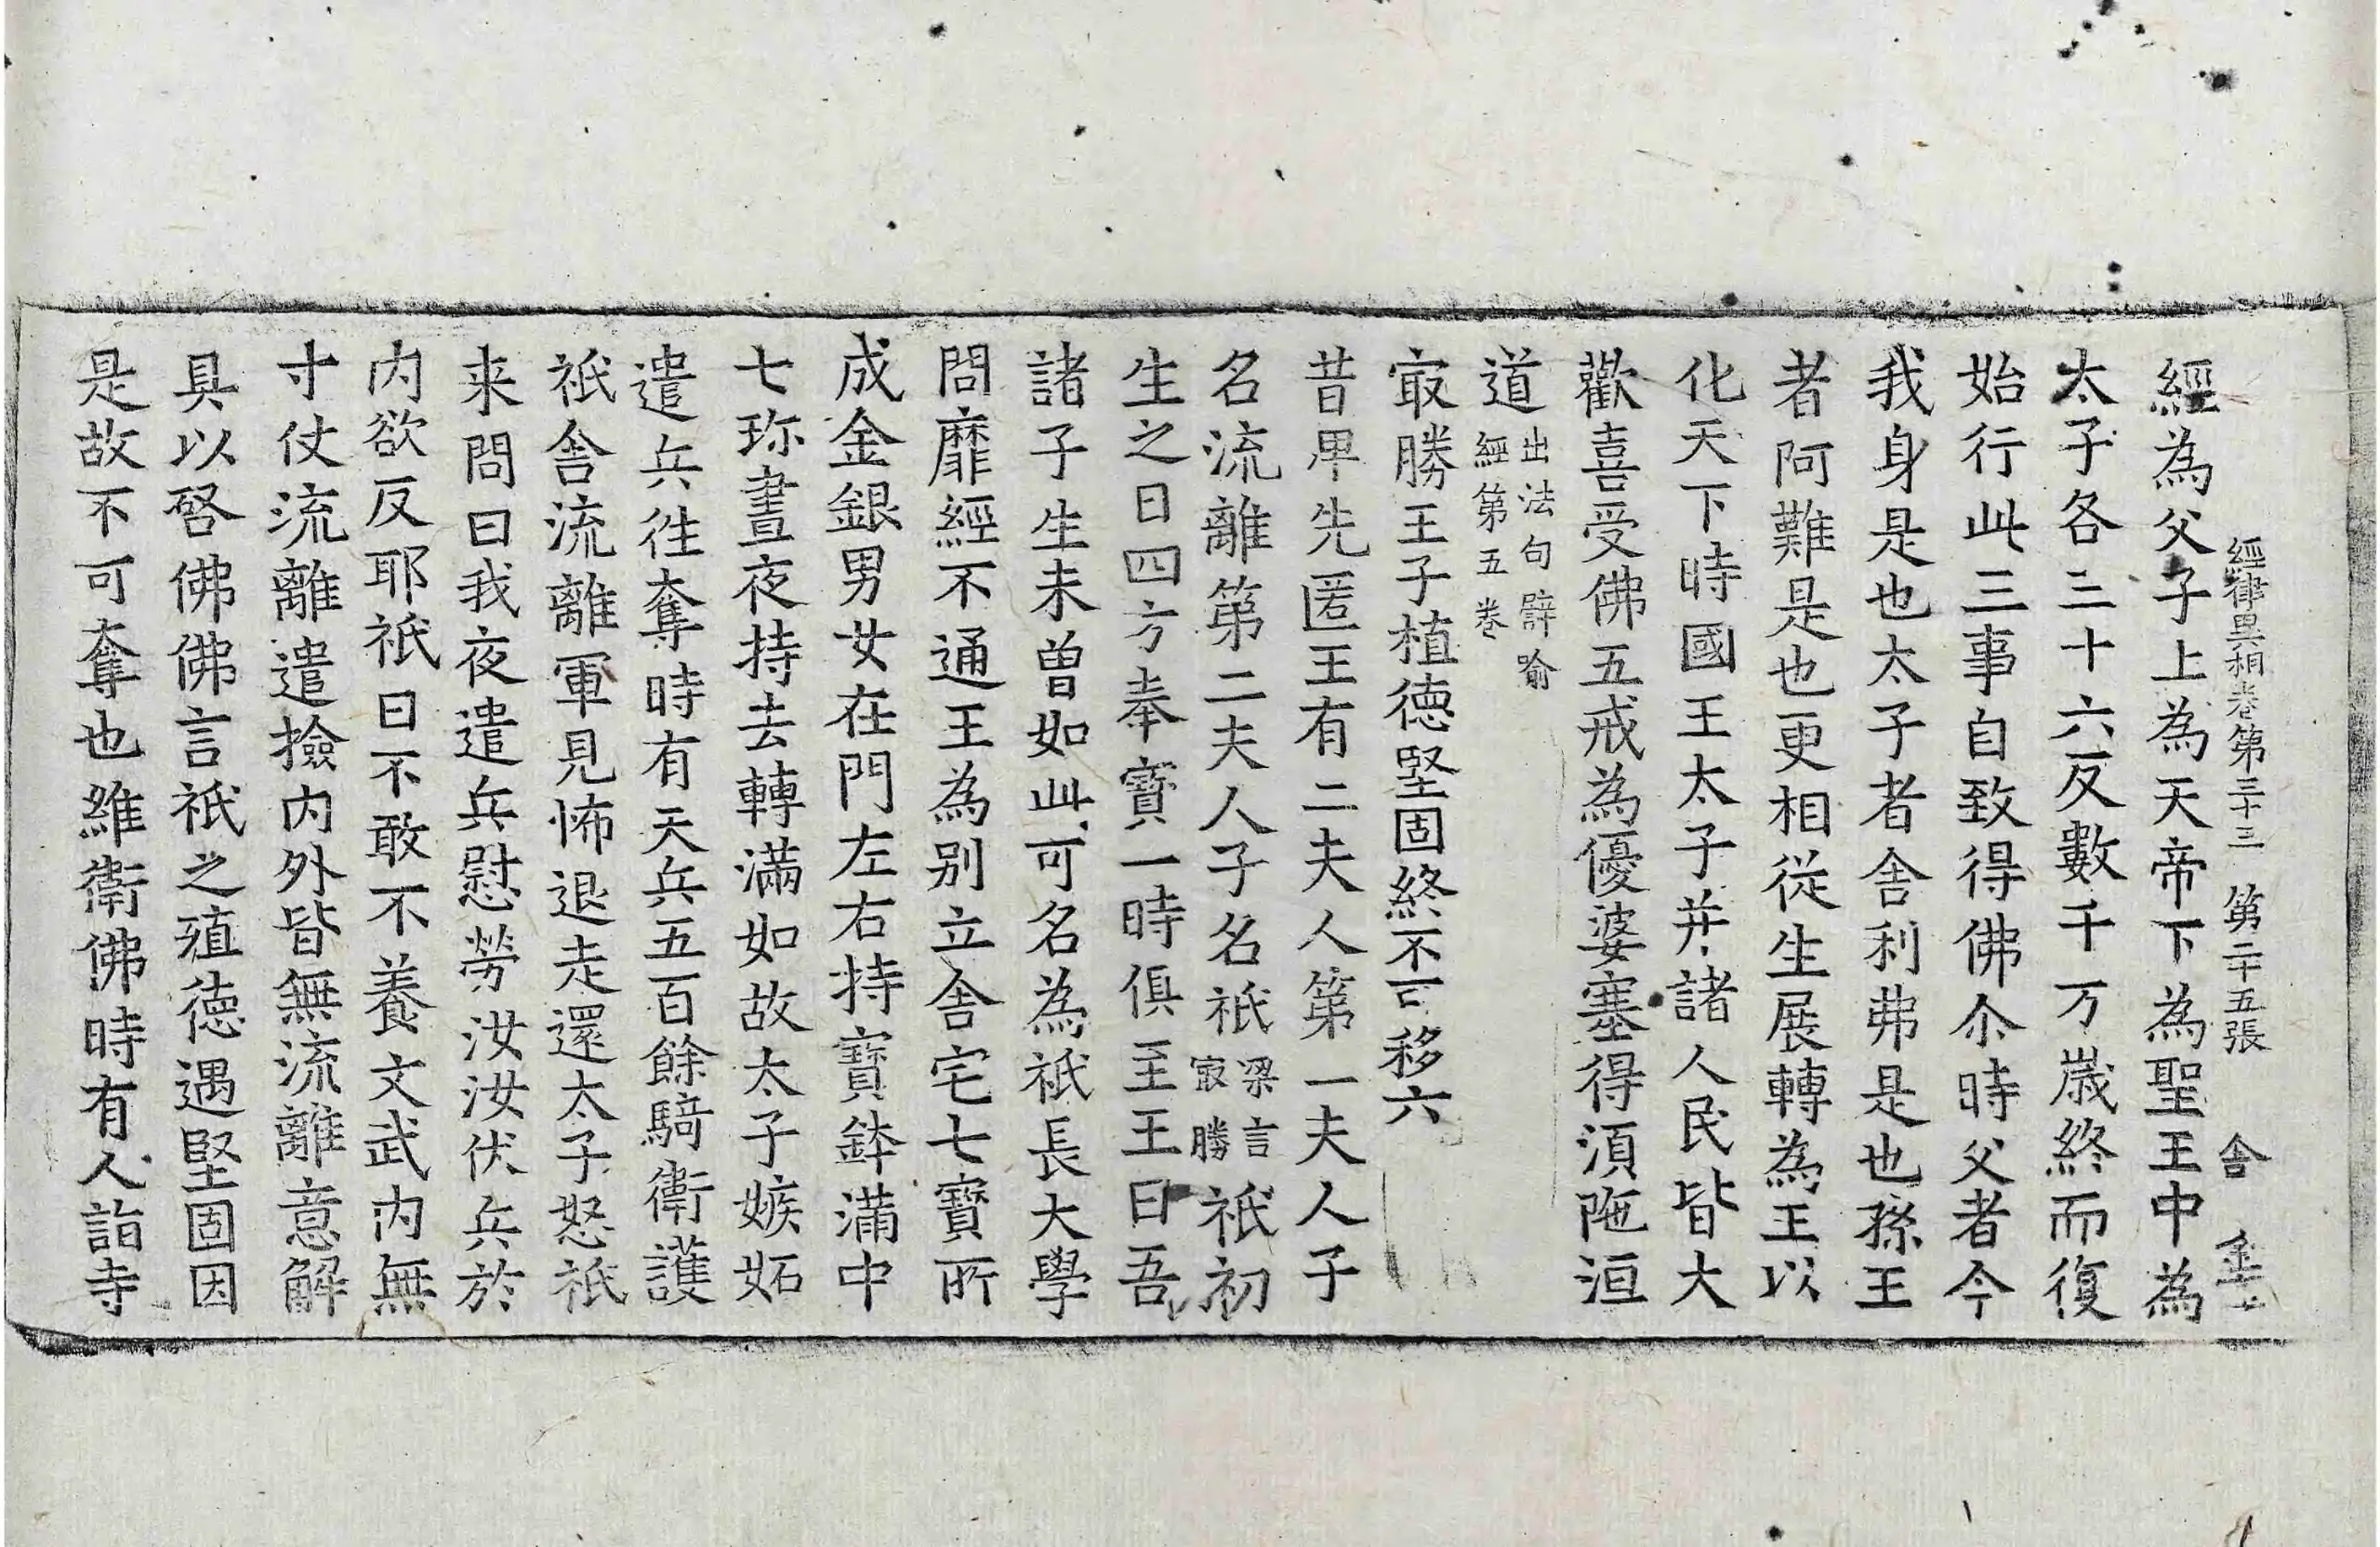 經律異相卷第三十三 第二十五張 舍
經為父子上為天帝下為聖王中為
太子各三十六反數千万歲終而復
始行此三事自致得佛尒時父者今
我身是也太子者舍利弗是也孫王
者阿難是也更相從生展轉為王以
化天下時國王太子并諸人民皆大
歡喜受佛五戒為優婆塞得湏陁洹
道出法句辟喻
經第五卷
㝡勝王子植德堅固終不可移六
昔卑先匿王有二夫人第一夫人子
名流離第二夫人子名祇梁言
㝡勝祇初
生之日四方奉寶一時俱至王曰吾
諸子生未曾如此可名為祇長大學
問靡經不通王為別立舍宅七寶所
成金銀男女在門左右持寶鉢滿中
七珎晝夜持去轉滿如故太子嫉妬
遣兵往奪時有天兵五百餘騎衛護
祇舍流離軍見怖退走還太子怒祇
来問曰我夜遣兵慰勞汝汝伏兵於
內欲反耶祇曰不敢不養文武內無
寸仗流離遣撿內外皆無流離意解
具以啓佛佛言祇之殖德遇堅固因
是故不可奪也維衛佛時有人詣寺